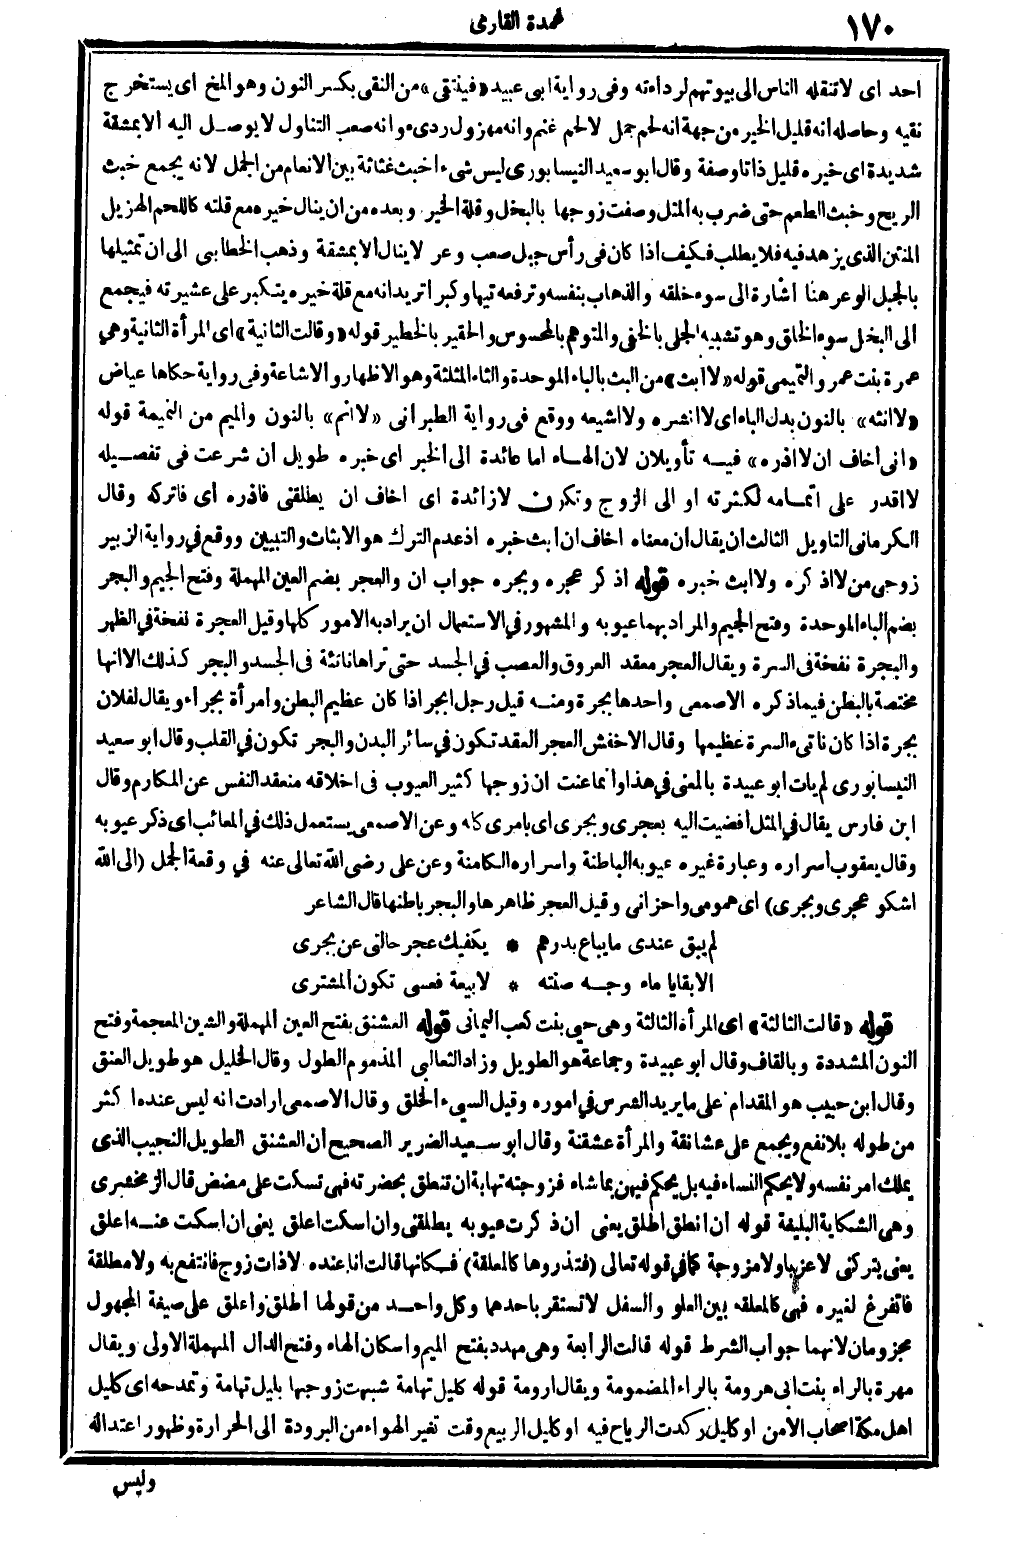 ١٧٠
عمدة القارى
احد اى لا تنقله الناس الى بيوتهم لرداءته وفى رواية ابى عبيد «فينتقى» من النقى بكسر النون وهو المخ اى يستخرج
نقيه وحاصله أنه قليل الخير من جهة أنه لحم جمل لا لحم غنم وانه مهزول ردىء وانه صعب التناول لا يوصل اليه الا بمشقة
شديدة اى خيره قليل ذاتا وصفة وقال ابو سعيد النيسابورى ليس شىء اخبث غثاثة بين الانعام من الجمل لانه يجمع خبث
الريح وخبث الطعم حتى ضرب به المثل وصفت زوجها بالبخل وقلة الخير وبعده من ان ينال خيره مع قلته كاللحم الهزيل
المنتن الذى يزهد فيه فلا يطلب فكيف اذا كان فى رأس جبل صعب وعر لا ينال الا بمشقة وذهب الخطابى الى ان تمثيلها
بالجبل الوعر هنا اشارة الى سوء خلقه والذهاب بنفسه وترفعه تيها وكبرا تريد انه مع قلة خيره يتكبر على عشيرته فيجمع
الى البخل سوء الخلق وهو تشبيه الجلى بالخفى والمتوهم بالمحسوس والحقير بالخطير قوله «وقالت الثانية» اى المرأة الثانية وهى
عمرة بنت عمرو التميمى قوله «لا ابث» من البث بالباء الموحدة والثاء المثلثة وهو الاظهار والاشاعة وفى رواية حكاها عياض
«لا انثه» بالنون بدل الباء اى لا انشره ولا اشيعه ووقع فى رواية الطبرانى «لا انم» بالنون والميم من النميمة قوله
«انى اخاف ان لا اذره» فيه تأويلان لان الهاء اما عائدة الى الخبر اى خبره طويل ان شرعت فى تفصيله
لا اقدر على اتمامه لكثرته او الى الزوج وتكون لا زائدة اى اخاف ان يطلقنى فاذره اى فاتركه وقال
الكرمانى التاويل الثالث ان يقال ان معناه اخاف ان ابث خبره اذ عدم الترك هو الابثاث والتبيين ووقع فى رواية الزبير
زوجى من لا اذكره ولا ابث خبره قوله اذكر عجره وبجره جواب ان والعجر بضم العين المهملة وفتح الجيم والبجر
بضم الباء الموحدة وفتح الجيم والمراد بهما عيوبه والمشهور فى الاستعمال ان يراد به الامور كلها وقيل العجرة نفخة فى الظهر
والبجرة نفخة فى السرة ويقال العجر معقد العروق والعصب في الجسد حتى تراها ناتئة فى الجسد والبجر كذلك الا انها
مختصة بالبطن فيما ذكره الاصمعى واحدها بجرة ومنه قيل رجل ابجر اذا كان عظيم البطن وامرأة بجراء ويقال لفلان
بجرة اذا كان ناتىء السرة عظيمها وقال الاخفش العجر العقد تكون في سائر البدن والبجر تكون في القلب وقال ابو سعيد
النيسابورى لم يات ابو عبيدة بالمعنى في هذا وانما عنت ان زوجها كثير العيوب فى اخلاقه منعقد النفس عن المكارم وقال
ابن فارس يقال في المثل افضيت اليه بعجرى وبجرى اى بامرى كله وعن الاصمعى يستعمل ذلك في المعائب اى ذكر عيوبه
وقال يعقوب اسراره وعبارة غيره عيوبه الباطنة واسراره الكامنة وعن على رضى الله تعالى عنه في وقعة الجمل (الى الله
اشكو عجرى وبجرى) اى همومى واحزانى وقيل العجر ظاهرها والبجر باطنها قال الشاعر
لم يبق عندى ما يباع بدرهم * يكفيك عجر حالتى عن بجرى
الا بقايا ماء وجه صنته * لابيعة فعسى تكون المشترى
قوله «قالت الثالثة» اى المرأة الثالثة وهى حبى بنت كعب اليمانى قوله العشنق بفتح العين المهملة والشين المعجمة وفتح
النون المشددة وبالقاف وقال ابو عبيدة وجماعة هو الطويل وزاد الثعالبى المذموم الطول وقال الخليل هو طويل العنق
وقال ابن حبيب هو المقدام على ما يريد الشرس في اموره وقيل السىء الخلق وقال الاصمعى ارادت انه ليس عنده اكثر
من طوله بلا نفع ويجمع على عشانقة والمرأة عشقنة وقال ابو سعيد الضرير الصحيح ان العشنق الطويل النجيب الذى
يملك امر نفسه ولا يحكم النساء فيه بل يحكم فيهن بما شاء فزوجته تهابه ان تنطق بحضرته فهى تسكت على مضض قال الزمخشرى
وهى الشكاية البليغة قوله ان انطق اطلق يعنى ان ذكرت عيوبه يطلقنى وان اسكت اعلق يعنى ان اسكت عنه اعلق
يعنى يتركنى لا عزبا ولا مزوجة كما في قوله تعالى (فتذروها كالمعلقة) فكانها قالت انا عنده لا ذات زوج فانتفع به ولا مطلقة
فاتفرغ لغيره فهى كالمعلقه بين العلو والسفل لا تستقر باحدهما وكل واحد من قولها اطلق واعلق على صيغة المجهول
مجزومان لانهما جواب الشرط قوله قالت الرابعة وهى مهدد بفتح الميم واسكان الهاء وفتح الدال المهملة الاولى ويقال
مهرة بالراء بنت ابى هرومة بالراء المضمومة ويقال ارومة قوله كليل تهامة شبهت زوجها بليل تهامة وتمدحه اى كليل
اهل مكة اصحاب الامن او كليل ركدت الرياح فيه او كليل الربيع وقت تغير الهواء من البرودة الى الحرارة وظهور اعتداله
وليس